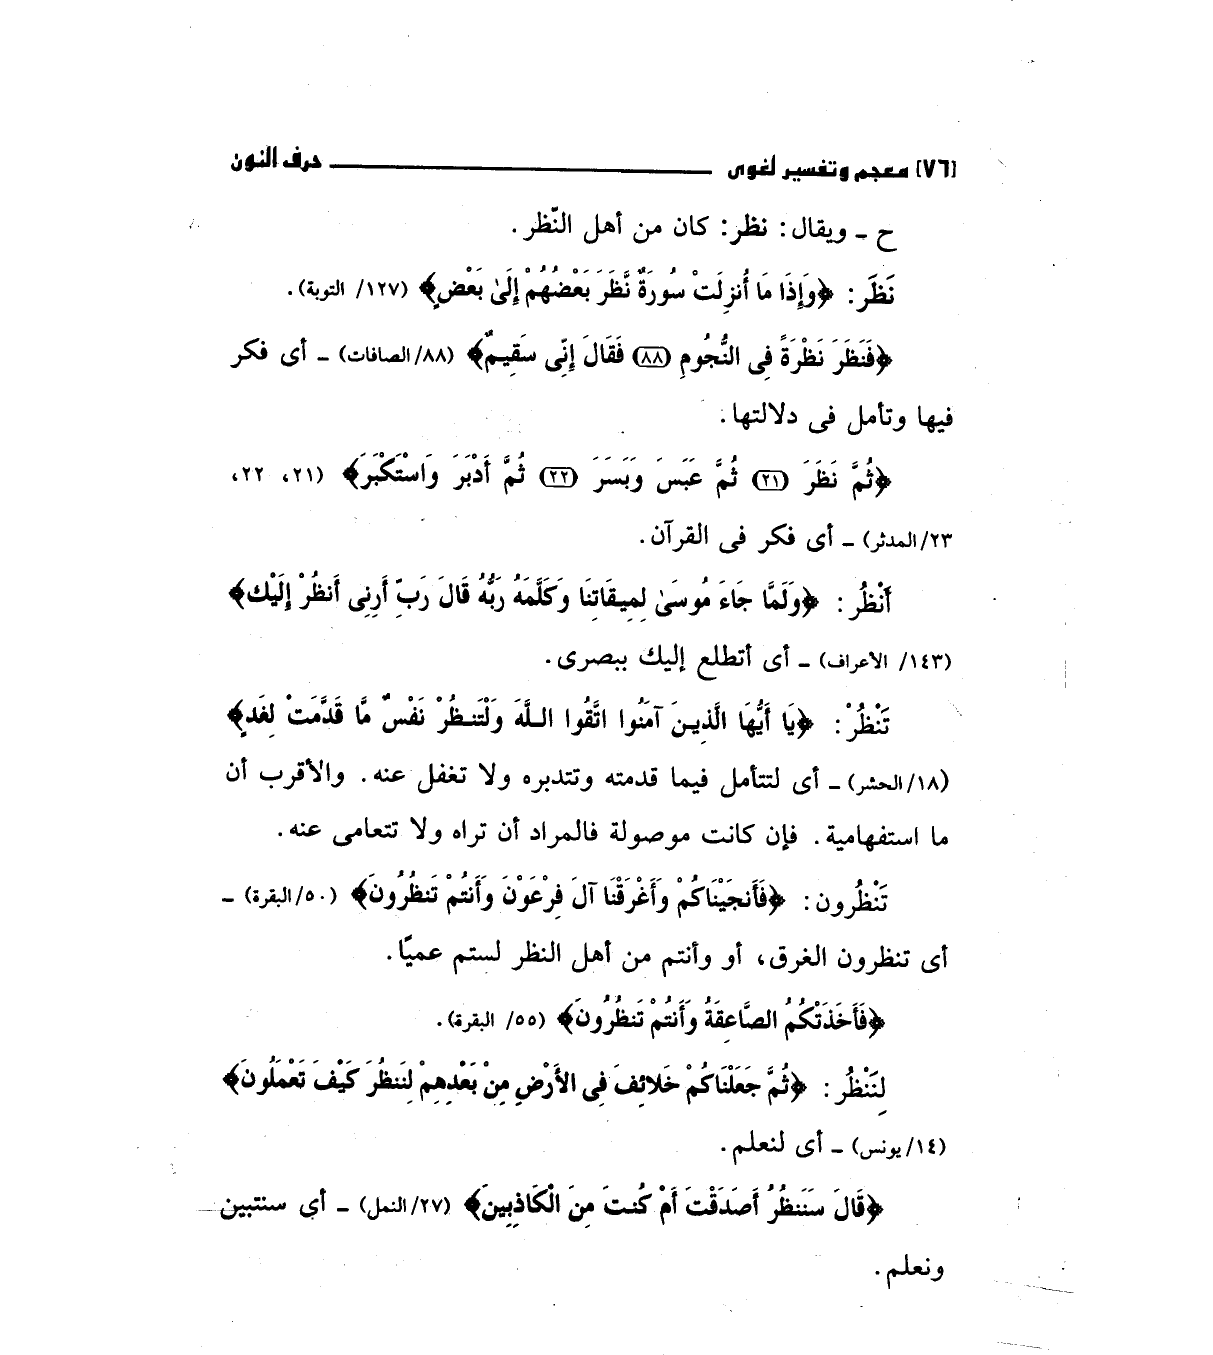 [٧٦] معجم وتفسير لغوى ـــــ حرف النون
ح ـ ويقال: نظر: كان من أهل النّظر.
نَظَر: ﴿وَإِذَا مَا أُنزِلَتْ سُورَةٌ نَّظَرَ بَعْضُهُمْ إِلَىٰ بَعْضٍ﴾ (١٢٧/ التوبة).
﴿فَنَظَرَ نَظْرَةً فِى النُّجُومِ (٨٨) فَقَالَ إِنِّى سَقِيمٌ﴾ (٨٨/ الصافات) ـ أى فكر
فيها وتأمل فى دلالتها.
﴿ثُمَّ نَظَرَ (٢١) ثُمَّ عَبَسَ وَبَسَرَ (٢٢) ثُمَّ أَدْبَرَ وَاسْتَكْبَرَ﴾ (٢١، ٢٢،
٢٣/ المدثر) ـ أى فكر فى القرآن.
أَنْظُر: ﴿وَلَمَّا جَاءَ مُوسَىٰ لِمِيقَاتِنَا وَكَلَّمَهُ رَبُّهُ قَالَ رَبِّ أَرِنِى أَنظُرْ إِلَيْك﴾
(١٤٣/ الأعراف) ـ أى أتطلع إليك ببصرى.
تَنْظُرْ: ﴿يَا أَيُّهَا الَّذِينَ آمَنُوا اتَّقُوا اللَّهَ وَلْتَنظُرْ نَفْسٌ مَّا قَدَّمَتْ لِغَدٍ﴾
(١٨/ الحشر) ـ أى لتتأمل فيما قدمته وتتدبره ولا تغفل عنه. والأقرب أن
ما استفهامية. فإن كانت موصولة فالمراد أن تراه ولا تتعامى عنه.
تَنْظُرون: ﴿فَأَنجَيْنَاكُمْ وَأَغْرَقْنَا آلَ فِرْعَوْنَ وَأَنتُمْ تَنظُرُونَ﴾ (٥٠/ البقرة) ـ
أى تنظرون الغرق، أو وأنتم من أهل النظر لستم عميًا.
﴿فَأَخَذَتْكُمُ الصَّاعِقَةُ وَأَنتُمْ تَنظُرُونَ﴾ (٥٥/ البقرة).
لِنَنْظُر: ﴿ثُمَّ جَعَلْنَاكُمْ خَلائِفَ فِى الأَرْضِ مِنْ بَعْدِهِمْ لِنَنظُرَ كَيْفَ تَعْمَلُونَ﴾
(١٤/ يونس) ـ أى لنعلم.
﴿قَالَ سَنَنظُرُ أَصَدَقْتَ أَمْ كُنتَ مِنَ الْكَاذِبِينَ﴾ (٢٧/ النمل) ـ أى سنتبين
ونعلم.